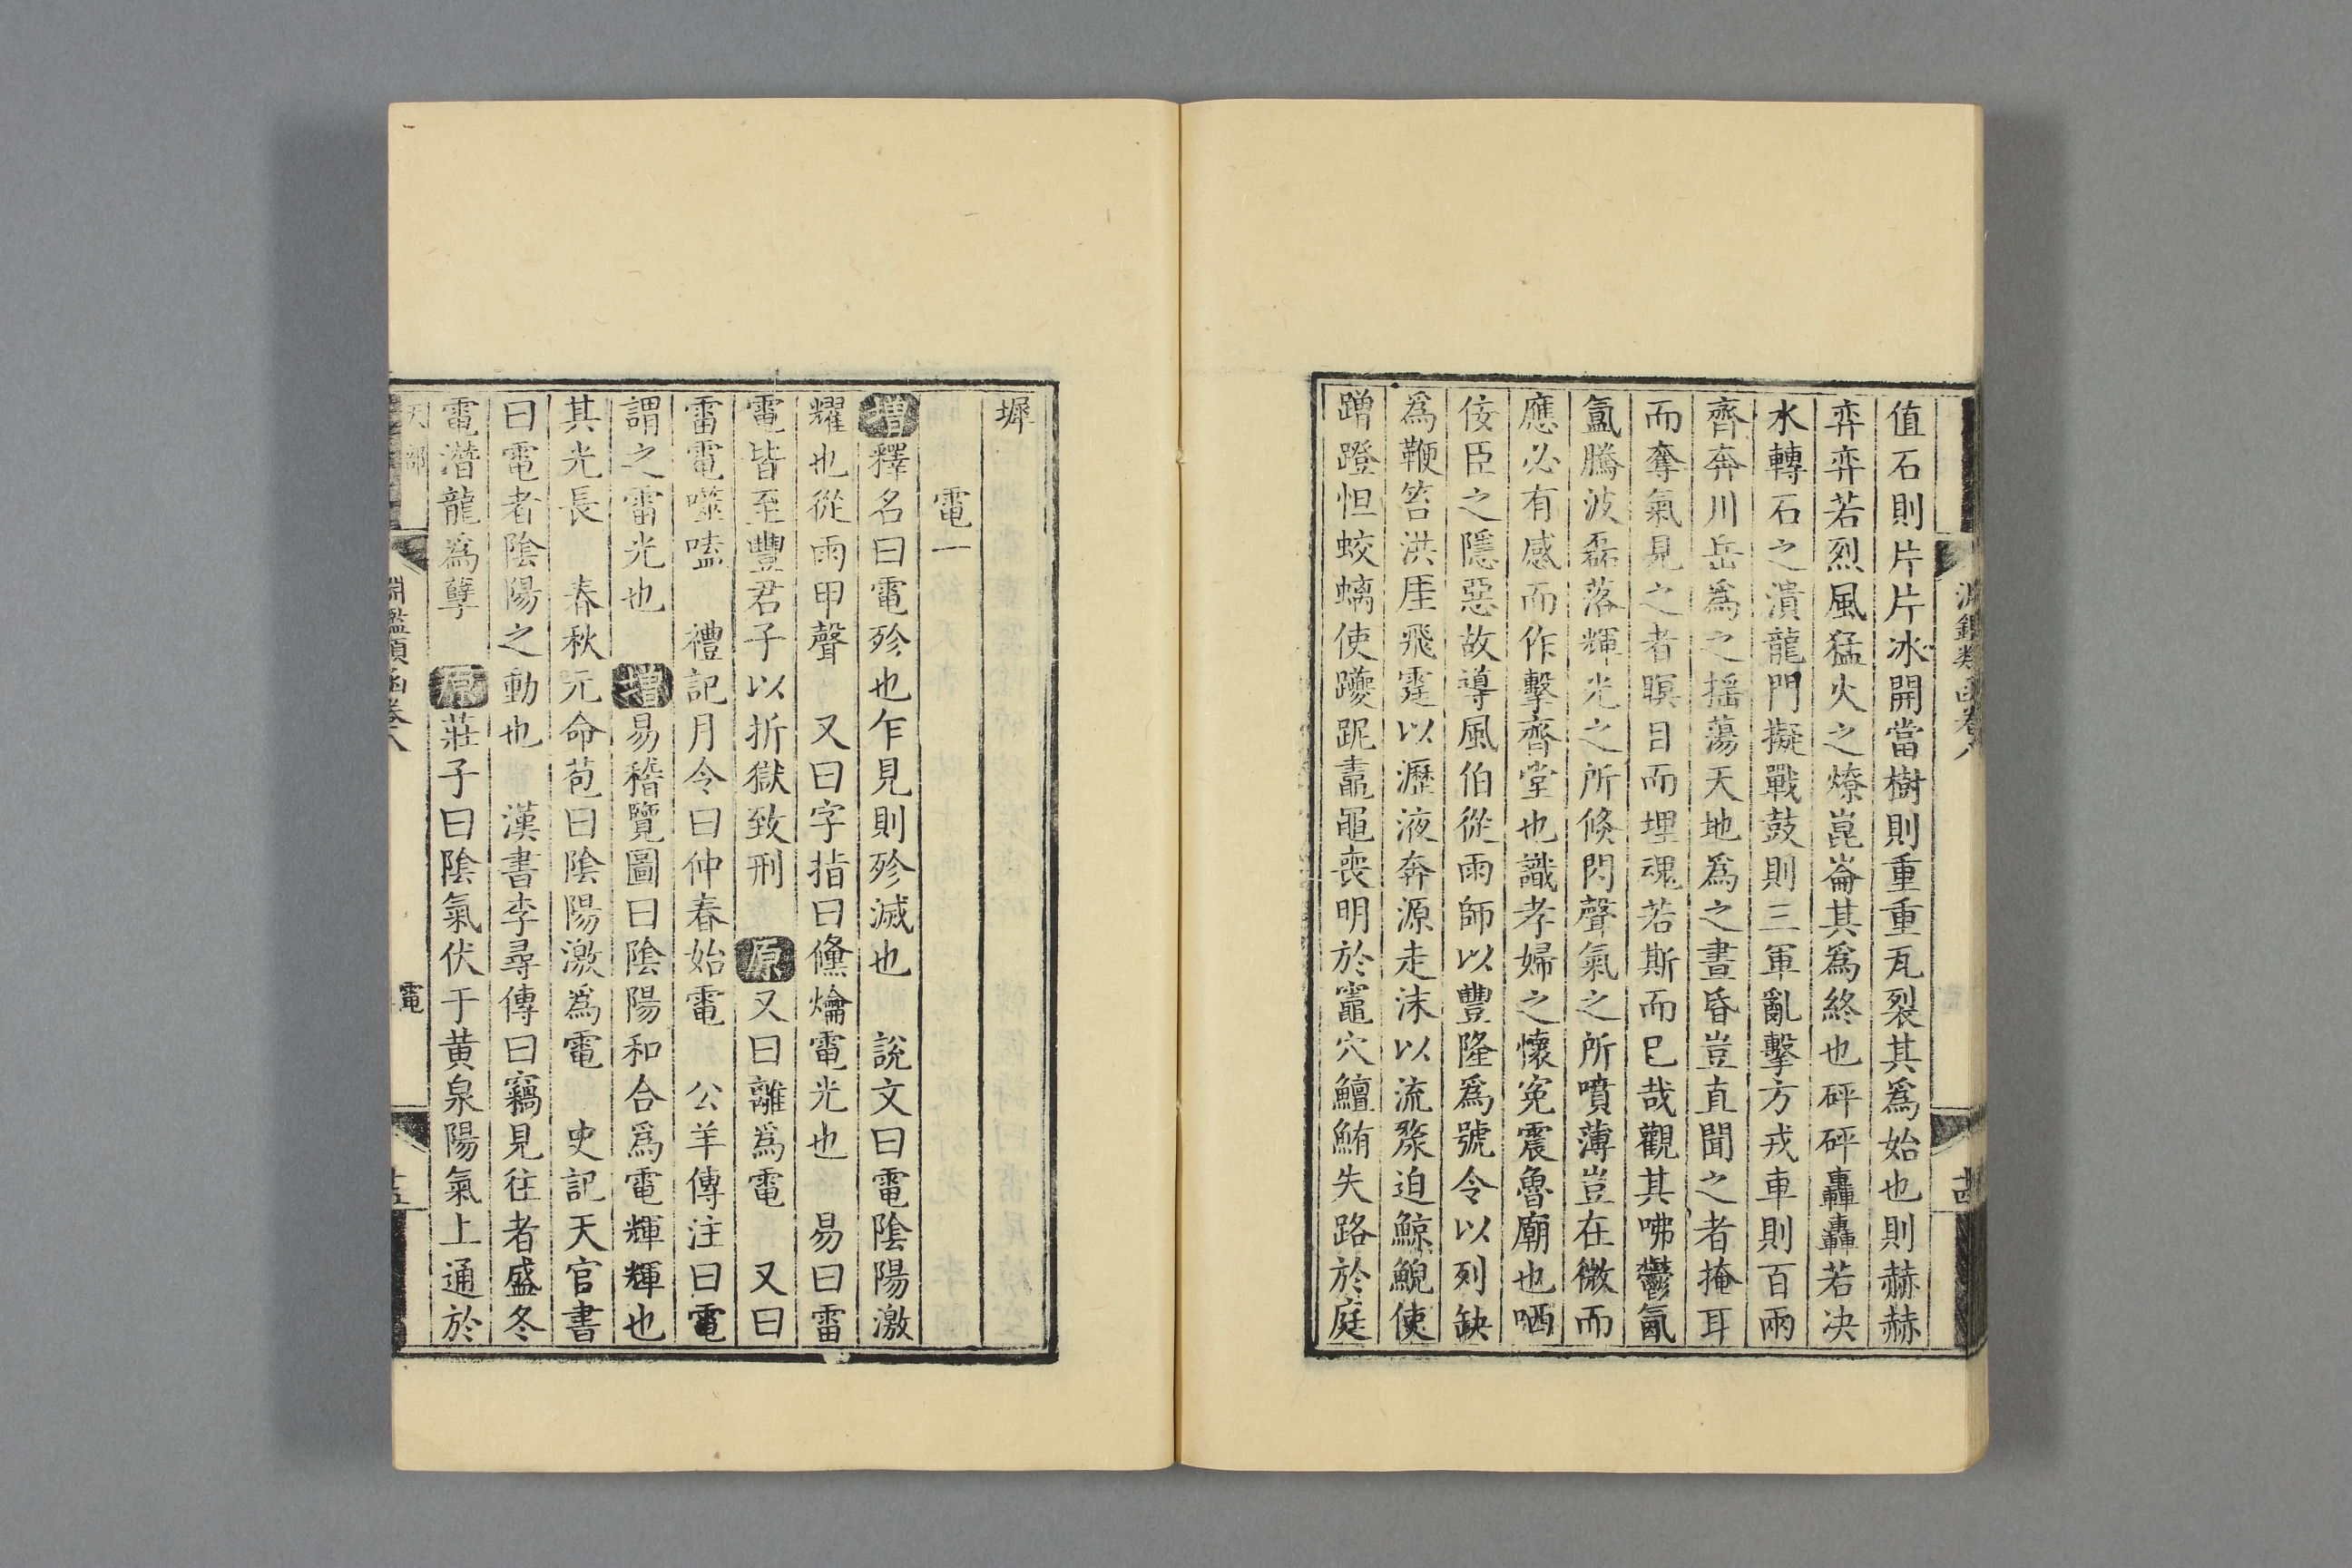 淵鑑類函卷八
值石則片片冰開當樹則重重瓦裂其爲始也則赫赫
弈弈若烈風猛火之燎崑崙其爲終也砰砰轟轟若决
水轉石之潰龍門擬戰鼓則三軍亂擊方戎車則百兩
齊奔川岳爲之揺蕩天地爲之晝昏豈直聞之者掩耳
而奪氣見之者瞑目而埋魂若斯而已哉觀其咈鬱氤
氳騰波磊落輝光之所倏閃聲氣之所噴薄豈在微而
應必有感而作擊齊堂也識孝婦之懷寃震魯廟也哂
佞臣之隱惡故導風伯從雨師以豐隆爲號令以列缺
爲鞭笞洪厓飛霆以瀝液奔源走沫以流漦迫鯨鯢使
蹭蹬怛蛟螭使躨跜鼃黽喪明於竈穴鱣鮪失路於庭
墀
電一
增釋名曰電殄也乍見則殄滅也　說文曰電陰陽激
耀也從雨甲聲　又曰字指曰儵爚電光也　易曰雷
電皆至豐君子以折獄致刑　原又曰離爲電　又曰
雷電噬嗑　禮記月令曰仲春始電　公羊傳注曰電
謂之雷光也　增易稽覽圖曰陰陽和合爲電輝輝也
其光長　春秋元命苞曰陰陽激爲電　史記天官書
曰電者陰陽之動也　漢書李尋傳曰竊見往者盛冬
電潛龍爲孽　原莊子曰陰氣伏于黄泉陽氣上通於
天部　淵鑑類函卷八　電